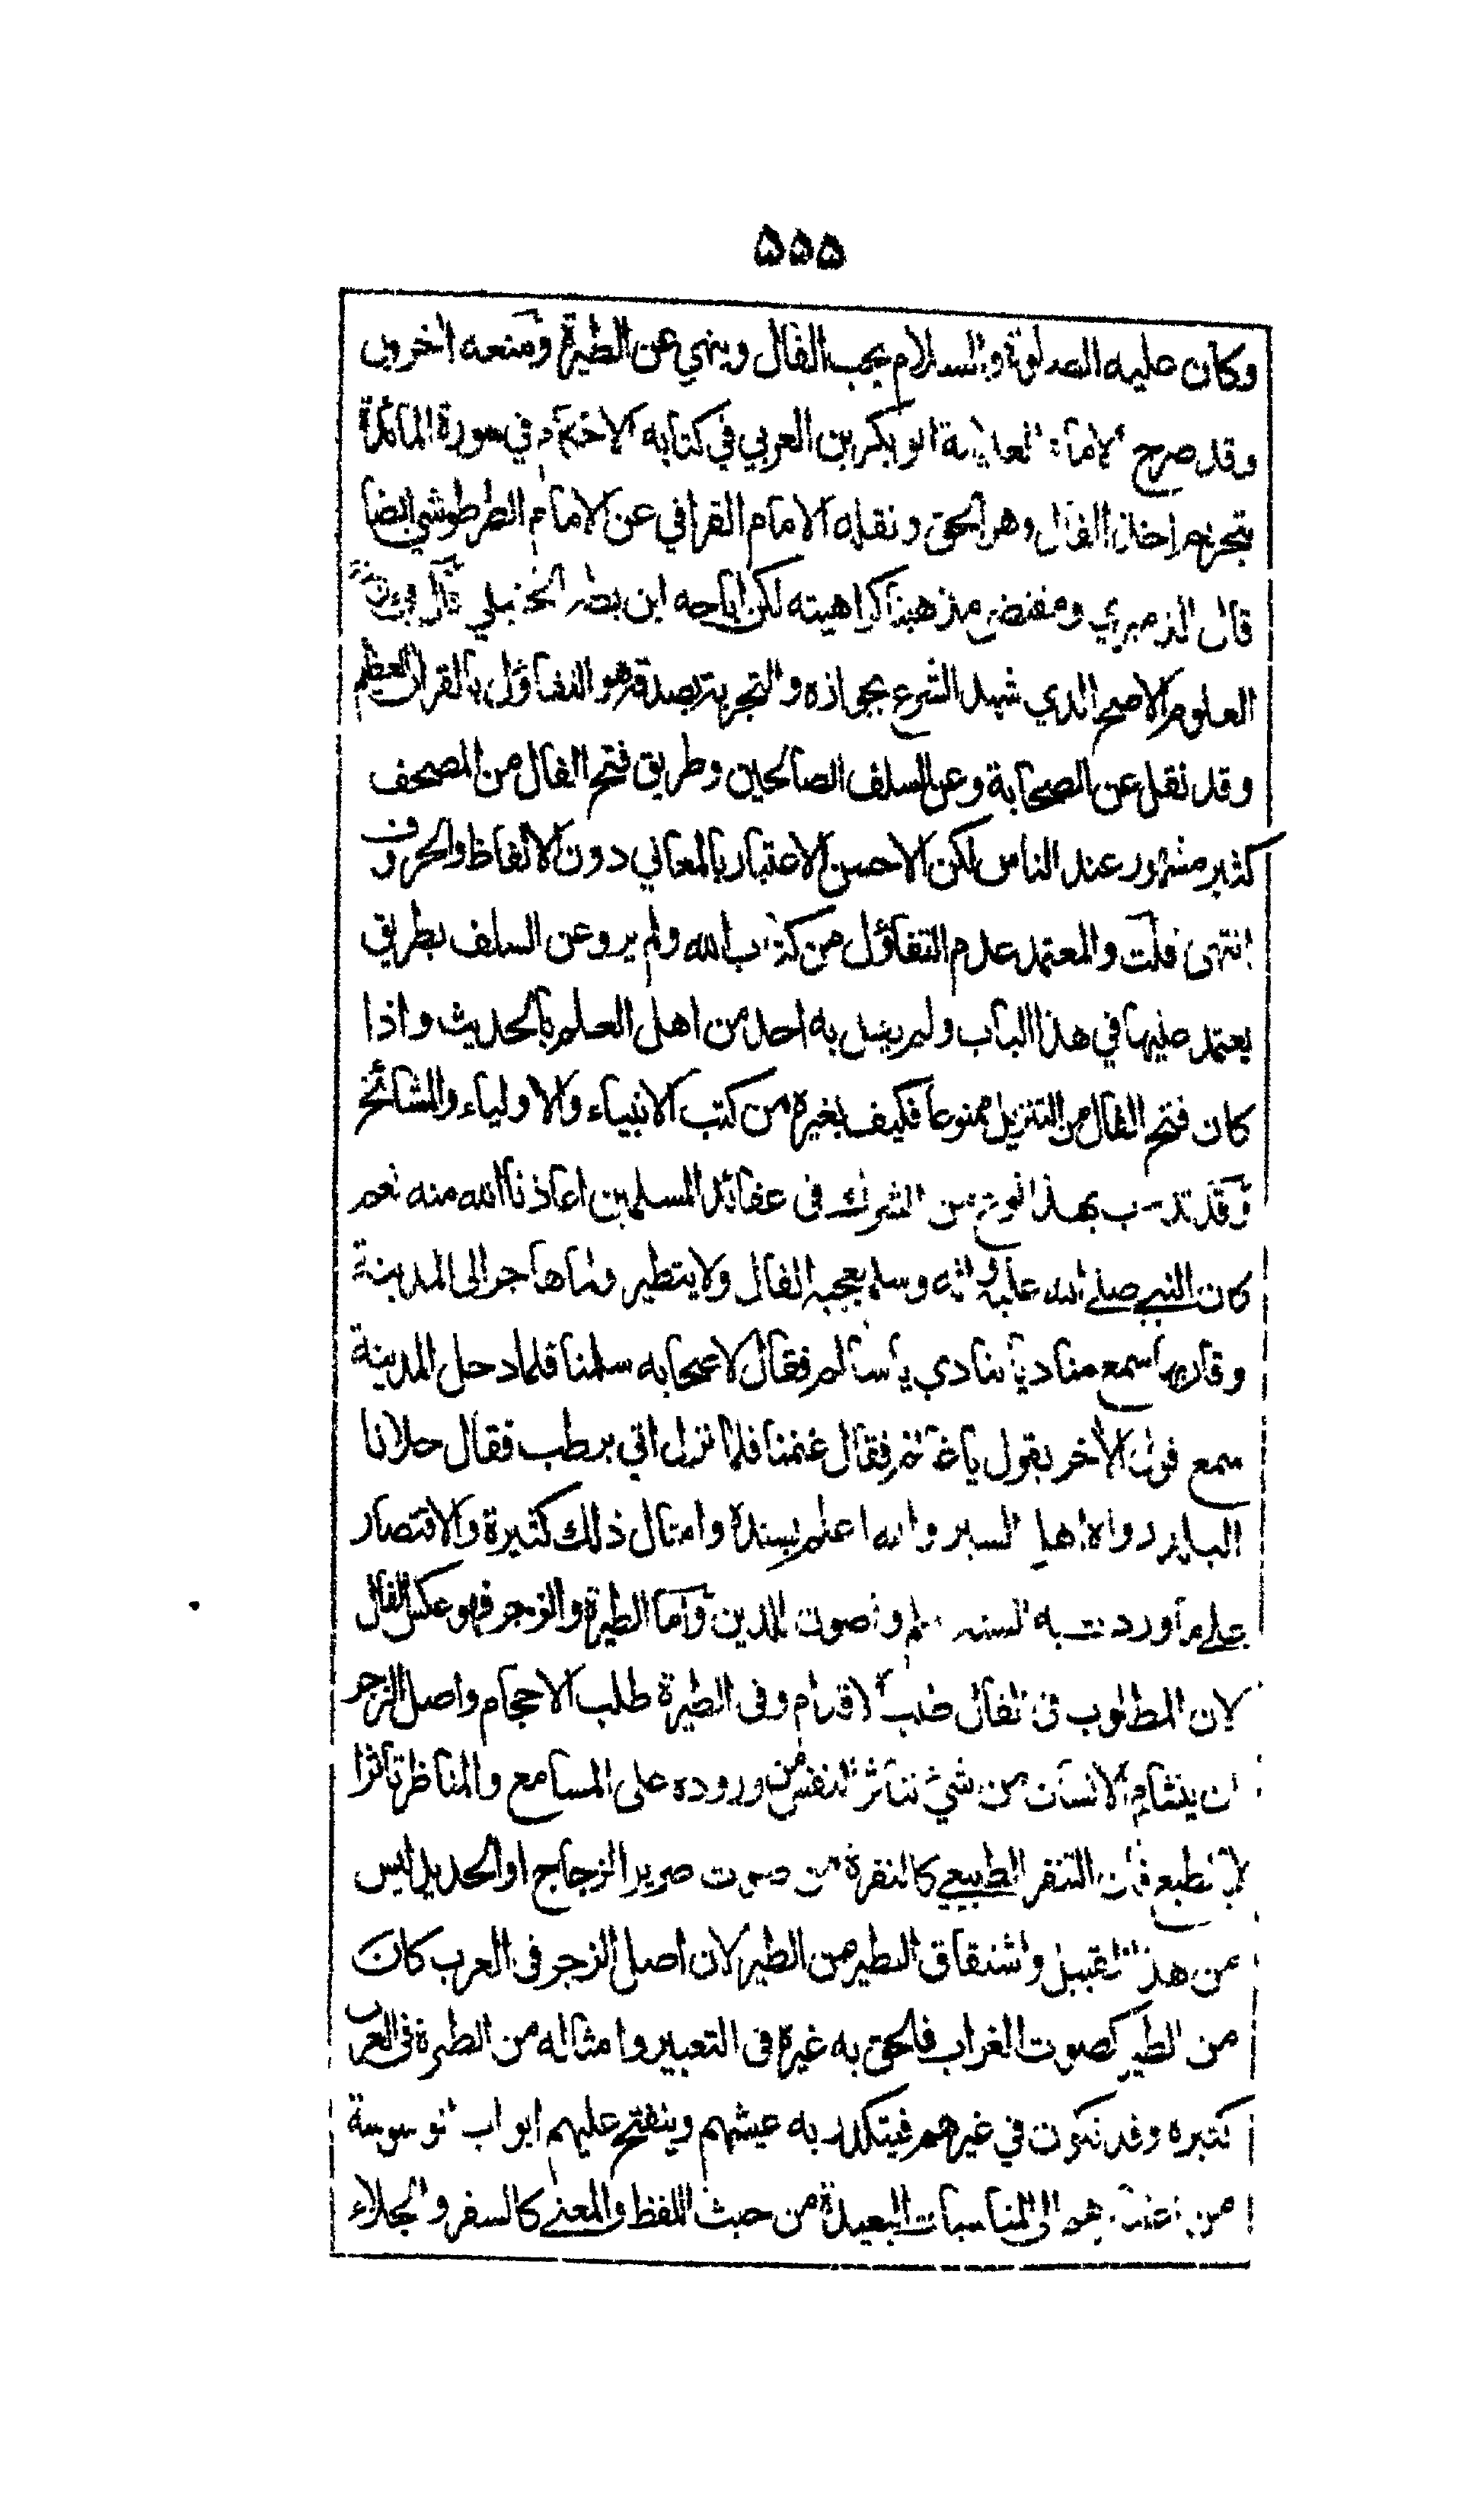 ٥٥٥
وكان عليه الصلوة والسلام يحب الفال وينهي عن الطيرة ومنعه اخرون
وقد صرح الامام العلامة ابو بكر بن العربي في كتابه الاحكام في سورة المائدة
بتحريم اخذ الفال وهو الحق ونقله الامام القرافي عن الامام الطرطوشي ايضا
قال الدميري ومقتضى مذهبنا كراهيته لكن اباحه ابن بطه الحنبلي قال في
العلوم الاصح الذي شهد الشرع بجوازه والتجربة بصدقه هو التفاؤل بالقران العظيم
وقد نقل عن الصحابة وعن السلف الصالحين وطريق فتح الفال من المصحف
كثير مشهور عند الناس لكن الاحسن الاعتبار بالمعاني دون الالفاظ والحروف
انتهى قلت والمعتمد عدم التفاؤل من كتاب الله ولم يرو عن السلف بطريق
يعتمد عليها في هذا الباب ولم يقل به احد من اهل العلم بالحديث واذا
كان فتح الفال من التنزيل ممنوعا فكيف بغيره من كتب الانبياء والاولياء والمشائخ
وقد تدرب بهذا نوع من الشرك فى عقائد المسلمين اعاذنا الله منه نعم
كان النبي صلى الله عليه واله وسلم يعجبه الفال ولا يتطير ولما هاجر الى المدينة
وقاربها سمع مناديا ينادي يا سالم فقال لاصحابه سلمنا فلما دخل المدينة
سمع قول الأخر يقول يا غانم فقال غنمنا فلما نزل اتي برطب فقال حلا لنا
البلد رواه اهل السير والله اعلم بسنده وامثال ذلك كثيرة والاقتصار
على ما وردت به السنه اسلم واصون للدين واما الطيرة والزجر فهو عكس الفال
لان المطلوب فى الفال طلب الاقدام وفى الطيرة طلب الاحجام واصل الزجر
ان يتشام الانسان من شيء تتأثر النفس من وروده على المسامع والمناظر تأثرا
لا بالطبع فان التنفر الطبيعي كالنفرة من صوت صرير الزجاج او الحديد ليس
من هذا القبيل واشتقاق التطير من الطير لان اصل الزجر فى العرب كان
من الطير كصوت الغراب فالحق به غيره فى التعبير وامثاله من الطيرة فى العرب
كثيره وقد تكون في غيرهم فيتكدر به عيشهم وينفتح عليهم ابواب الوسوسة
من اعتنائهم الى المناسبات البعيدة من حيث اللفظ والمعنى كالسفر والجلاء